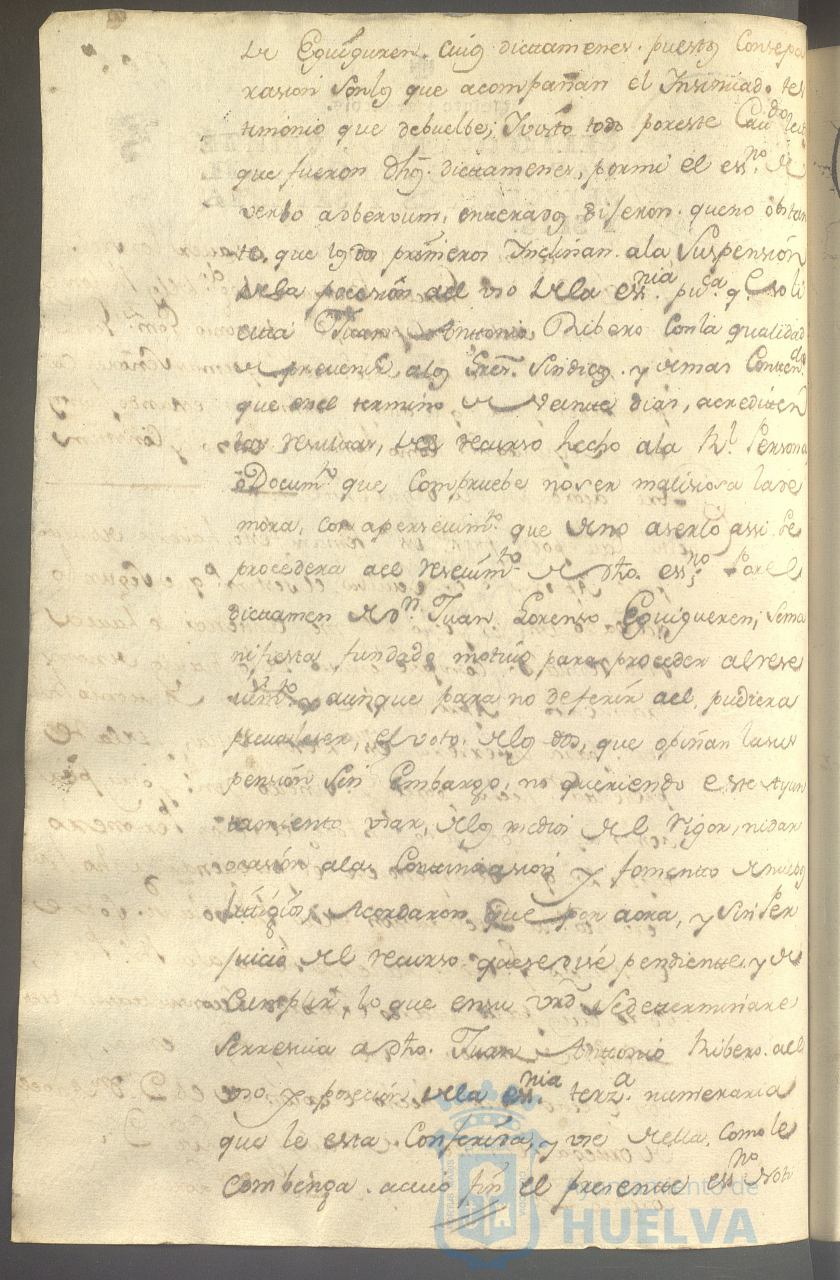 de Eguiguren. cuios dictamenes. puestos Consepa
rasion Son los que acompañan el Insinuado tes
timonio que debuelbe; Y visto todo por este Cau.do leidos
que fueron dhos. dictamenes, por mi el ess.no de
verbo adberbum, enterados dijeron. que no obstan
te, que los dos primeros Inclinan. ala Suspensión
dela posesión del vso dela ess.nia pu.ca q.e soli
cita Juan Antonio Ribero Con la qualidad
de prevenir alos Sres. Sindicos. y demas Conten.dos
que en el termino de veinte dias, acrediten
las resultas, del recurso hecho ala Rl. Persona
o Docum.to que Compruebe no ser malisiosa la de
mora, con apersevim.to que de no aserlo assi Se
procedera ael resevim.to de dho. ess.no Por el
dictamen de Dn. Juan Lorenso Eguigueren, se ma
nifiesta fundado motivo para proceder al rese
vim.to y aunque para no deferir ael pudiera
prevaleser, el voto. delos dos, que opinan la sus
pensión Sin Embargo, no queriendo este Ayun
tamiento vsar, delos medios del Rigor, ni dar
ocasión ala Continuasion y fomento de nuebos
Litigios Acordaron Que por aora, y Sin Per
juicio del recurso que se dise pendiente. y de
Cumplir, lo que en su vrd. Se determinare
Se resiva a dho. Juan Antonio Ribero. all
vso y posesión dela ess.nia terz.a numeraria
que le esta Conferida, y vse de ella. Como le
Combenga. a cuio fin el presente ess.no Noti
Ayuntamiento de
HUELVA